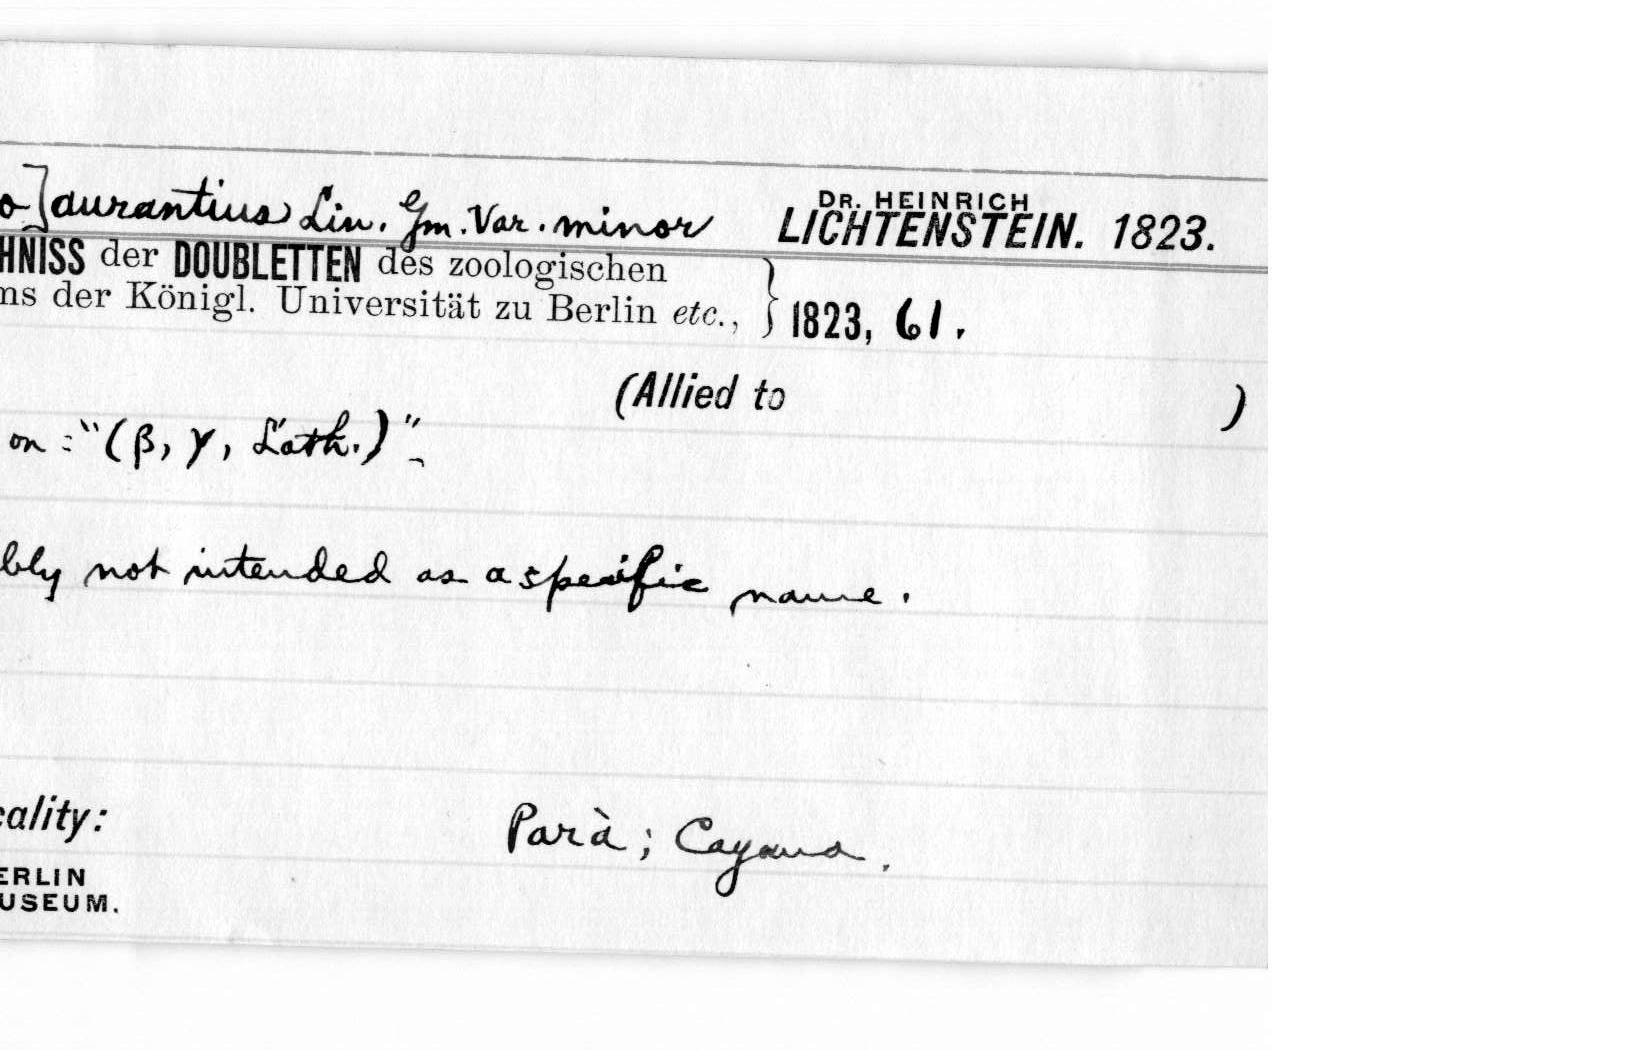 o] aurantius Lin. Gm. Var. minor DR. HEINRICH LICHTENSTEIN. 1823.
HNISS der DOUBLETTEN des zoologischen
ms der Königl. Universität zu Berlin etc., } 1823, 61.
(Allied to )
on :- "(β, γ, Lath.)"-
bly not intended as a specific name.
cality: Parà; Cayana.
ERLIN
USEUM.